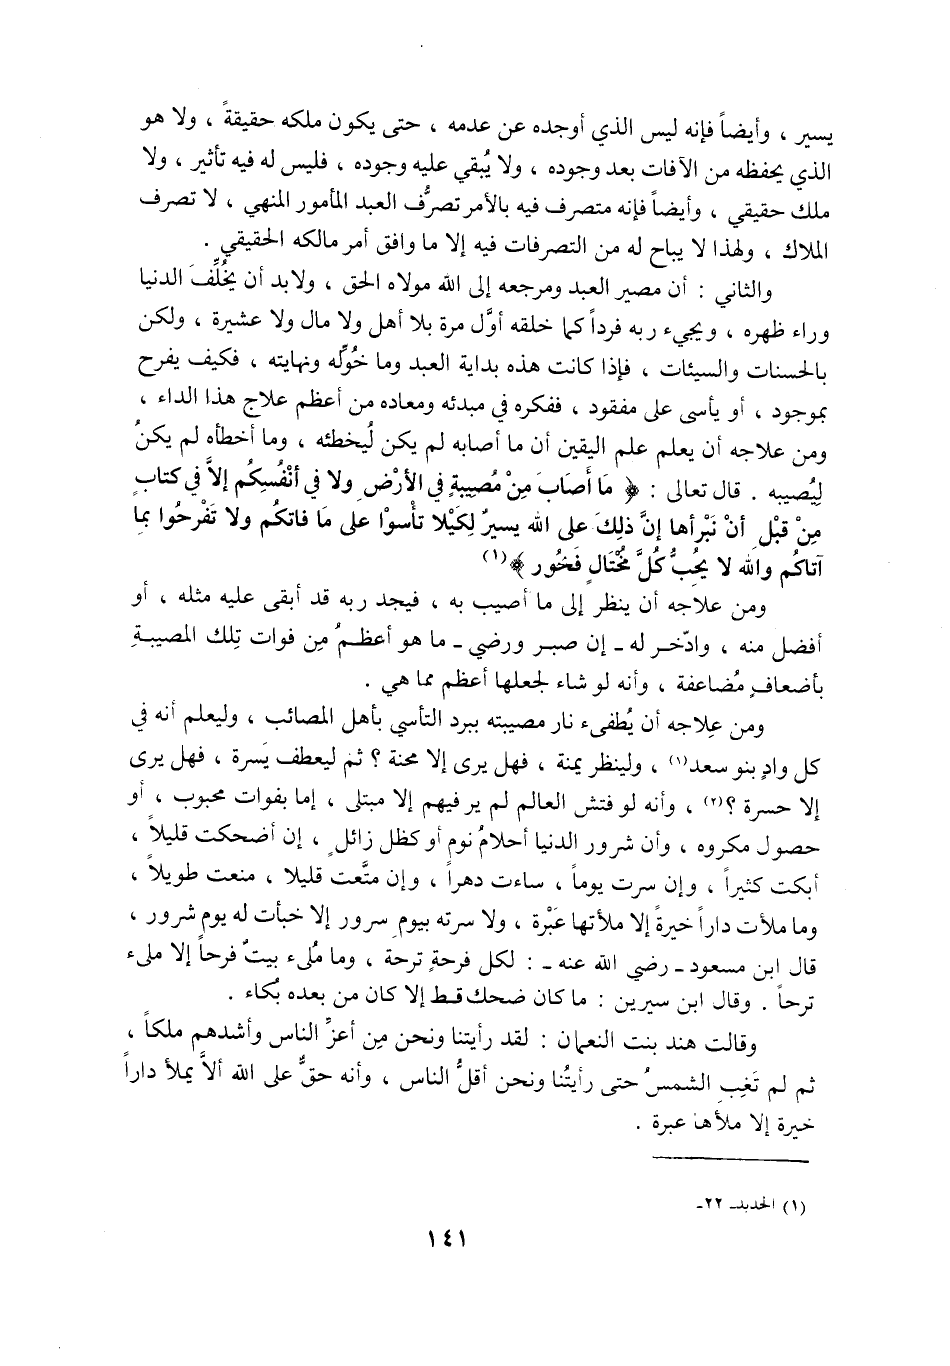 يسير ، وأيضاً فإنه ليس الذي أوجده عن عدمه ، حتى يكون ملكه حقيقةً ، ولا هو
الذي يحفظه من الآفات بعد وجوده ، ولا يُبقي عليه وجوده ، فليس له فيه تأثير ، ولا
ملك حقيقي ، وأيضاً فإنه متصرف فيه بالأمر تصرُّف العبد المأمور المنهي ، لا تصرف
الملاك ، ولهذا لا يباح له من التصرفات فيه إلا ما وافق أمر مالكه الحقيقي .
والثاني : أن مصير العبد ومرجعه إلى الله مولاه الحق ، ولابد أن يُخلِّفَ الدنيا
وراء ظهره ، ويجيء ربه فرداً كما خلقه أوَّل مرة بلا أهل ولا مال ولا عشيرة ، ولكن
بالحسنات والسيئات ، فإذا كانت هذه بداية العبد وما خُوِّله ونهايته ، فكيف يفرح
بموجود ، أو يأسى على مفقود ، ففكره في مبدئه ومعاده من أعظم علاج هذا الداء ،
ومن علاجه أن يعلم علم اليقين أن ما أصابه لم يكن لُيخطئه ، وما أخطأه لم يكنُ
لِيُصيبه . قال تعالى : ﴿ مَا أَصَابَ مِنْ مُصِيبةٍ في الأرْضِ ولا في أنْفُسِكُم إلاَّ في كتابٍ
مِنْ قبْلِ أنْ نَبْرأها إنَّ ذلِكَ على الله يسيرٌ لِكَيْلا تأْسوْا على مَا فاتكُم ولا تَفْرحُوا بما
آتاكُم والله لا يحُبُّ كُلَّ مُخْتَالٍ فَخُور ﴾(١)
ومن علاجه أن ينظر إلى ما أصيب به ، فيجد ربه قد أبقى عليه مثله ، أو
أفضل منه ، وادّخر له ـ إن صبر ورضي ـ ما هو أعظمُ مِن فوات تِلك المصيبةِ
بأضعافٍ مُضاعفة ، وأنه لو شاء لجعلها أعظم مما هي .
ومن عِلاجه أن يُطفىء نار مصيبته ببرد التأسي بأهل المصائب ، وليعلم أنه في
كل وادٍ بنو سعد(١) ، ولينظر يمنة ، فهل يرى إلا محنة ؟ ثم ليعطف يَسرة ، فهل يرى
إلا حسرة ؟(٢) ، وأنه لو فتش العالم لم ير فيهم إلا مبتلى ، إما بفوات محبوب ، أو
حصول مكروه ، وأن شرور الدنيا أحلامُ نوم أو كظل زائلٍ ، إن أضحكت قليلاً ،
أبكت كثيراً ، وإن سرت يوماً ، ساءت دهراً ، وإن متَّعت قليلا ، منعت طويلاً ،
وما ملأت داراً خيرةً إلا ملأتها عَبْرة ، ولا سرته بيومِ سرور إلا خبأت له يوم شرور ،
قال ابن مسعود ـ رضي الله عنه ـ : لكل فرحةٍ ترحة ، وما مُلىء بيتٌ فرحاً إلا ملىء
ترحاً . وقال ابن سيرين : ما كان ضحك قط إلا كان من بعده بُكاء .
وقالت هند بنت النعمان : لقد رأيتنا ونحن مِن أعزِّ الناس وأشدهم ملكاً ،
ثم لم تَغِبِ الشمسُ حتى رأيتُنا ونحن أقلُّ الناس ، وأنه حقٌّ على الله ألاَّ يملأ داراً
خيرة إلا ملأها عبرة .
(١) الحديد ـ ٢٢ ـ
١٤١